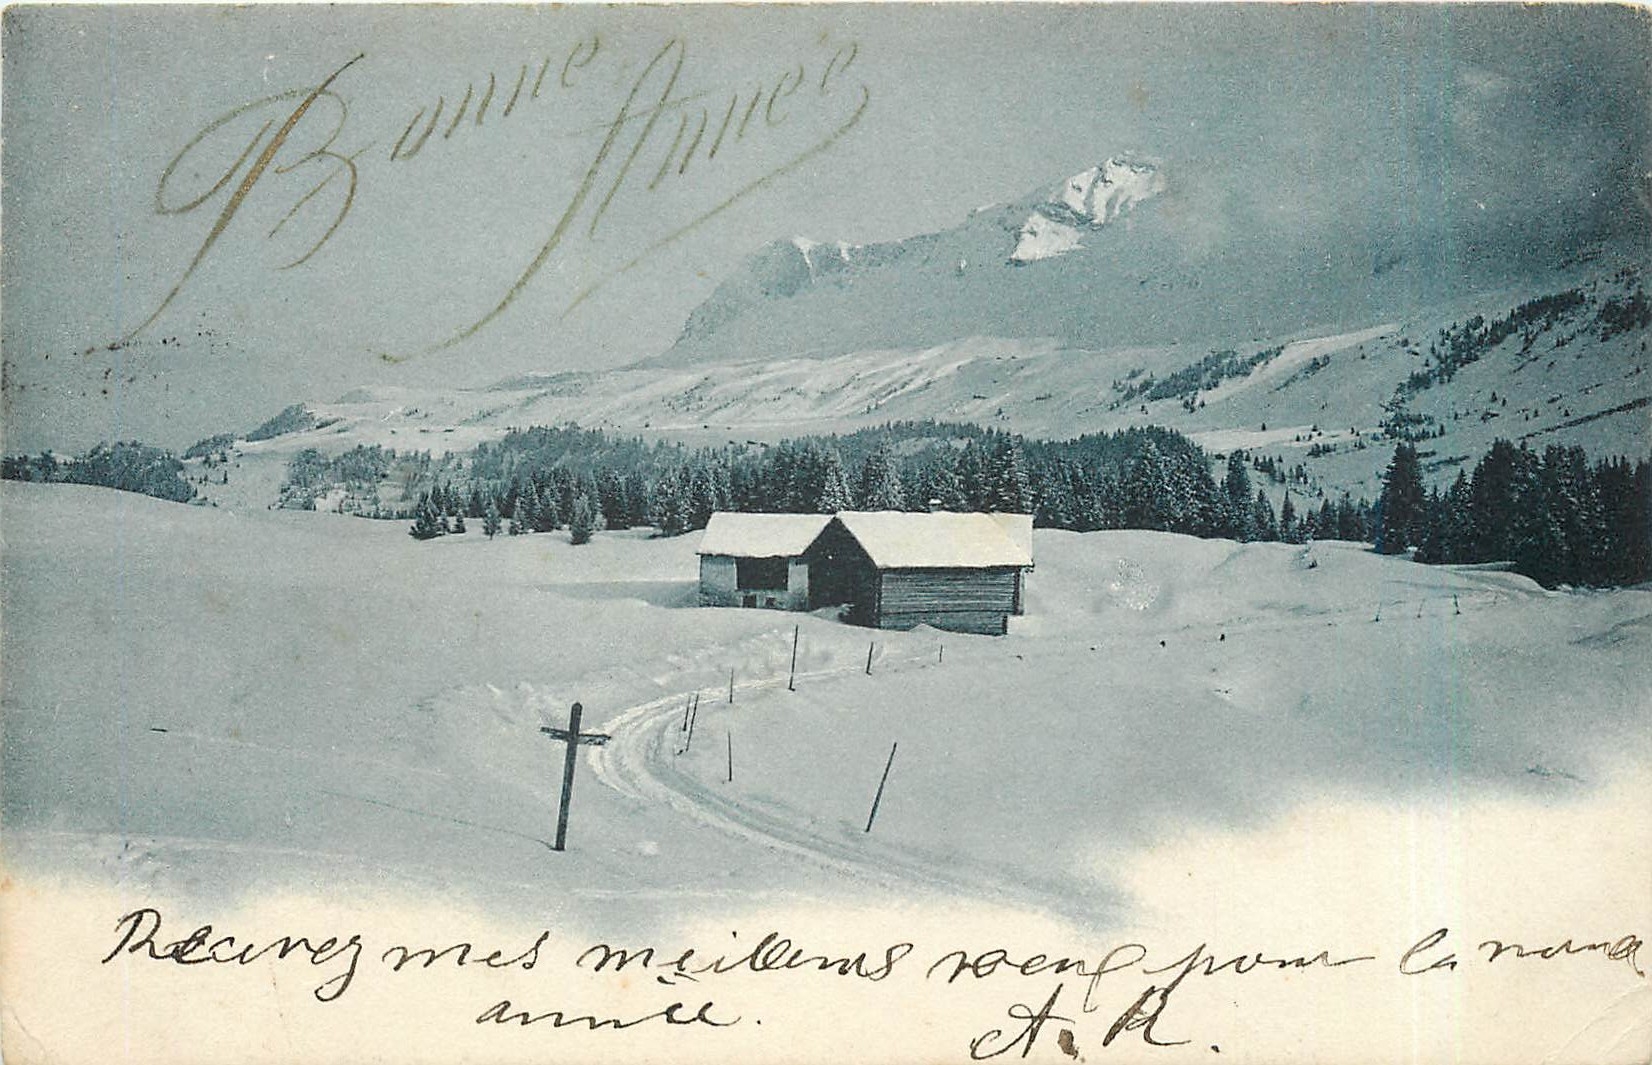 Bonne Année
Recevez mes meilleurs voeux pour la
année.
A. R.